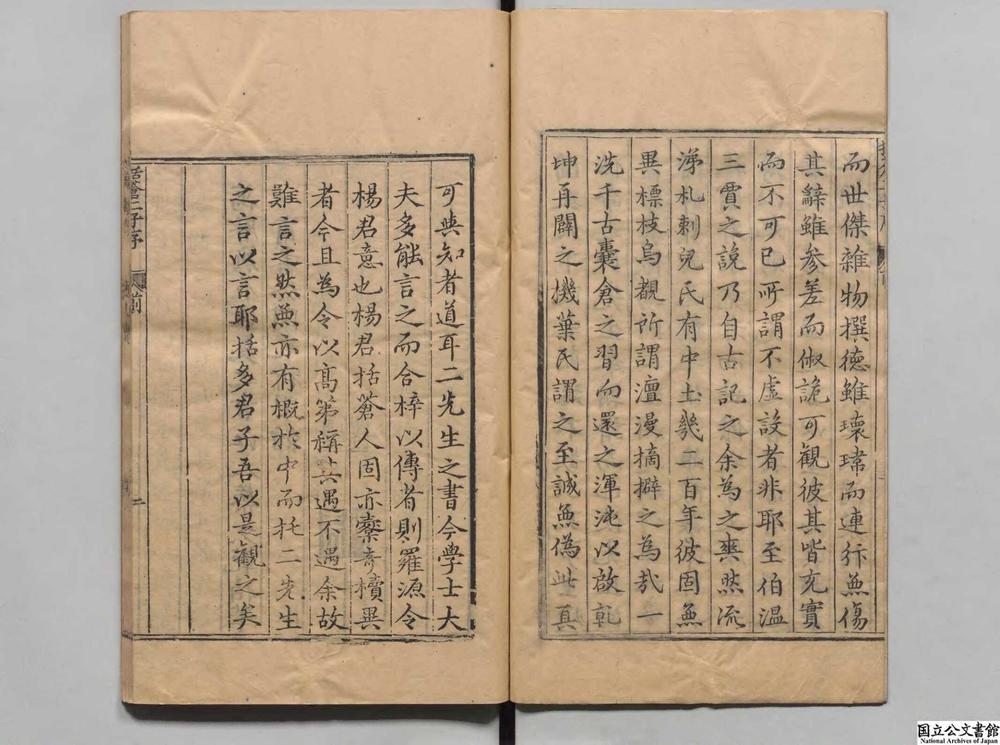 而世傑雜物撰德雖瓌瑋而連犿無傷
其辭雖參差而俶詭可觀彼其皆充實
而不可已所謂不虛設者非耶至伯溫
三賈之說乃自古記之余為之爽然流
涕札剌兒氏有中土幾二百年彼固無
異標枝烏覩所謂澶漫摘擗之為哉一
洗千古囊倉之習而還之渾沌以啟乾
坤再闢之機葉氏謂之至誠無偽此真
可與知者道耳二先生之書今學士大
夫多能言之而合梓以傳者則羅源令
楊君意也楊君括蒼人固亦櫜奇櫝異
者今且為令以高第稱其遇不遇余故
難言之然無亦有概於中而托二先生
之言以言耶括多君子吾以是觀之矣
括蒼二子序
前
二
國立公文書館
National Archives of Japan